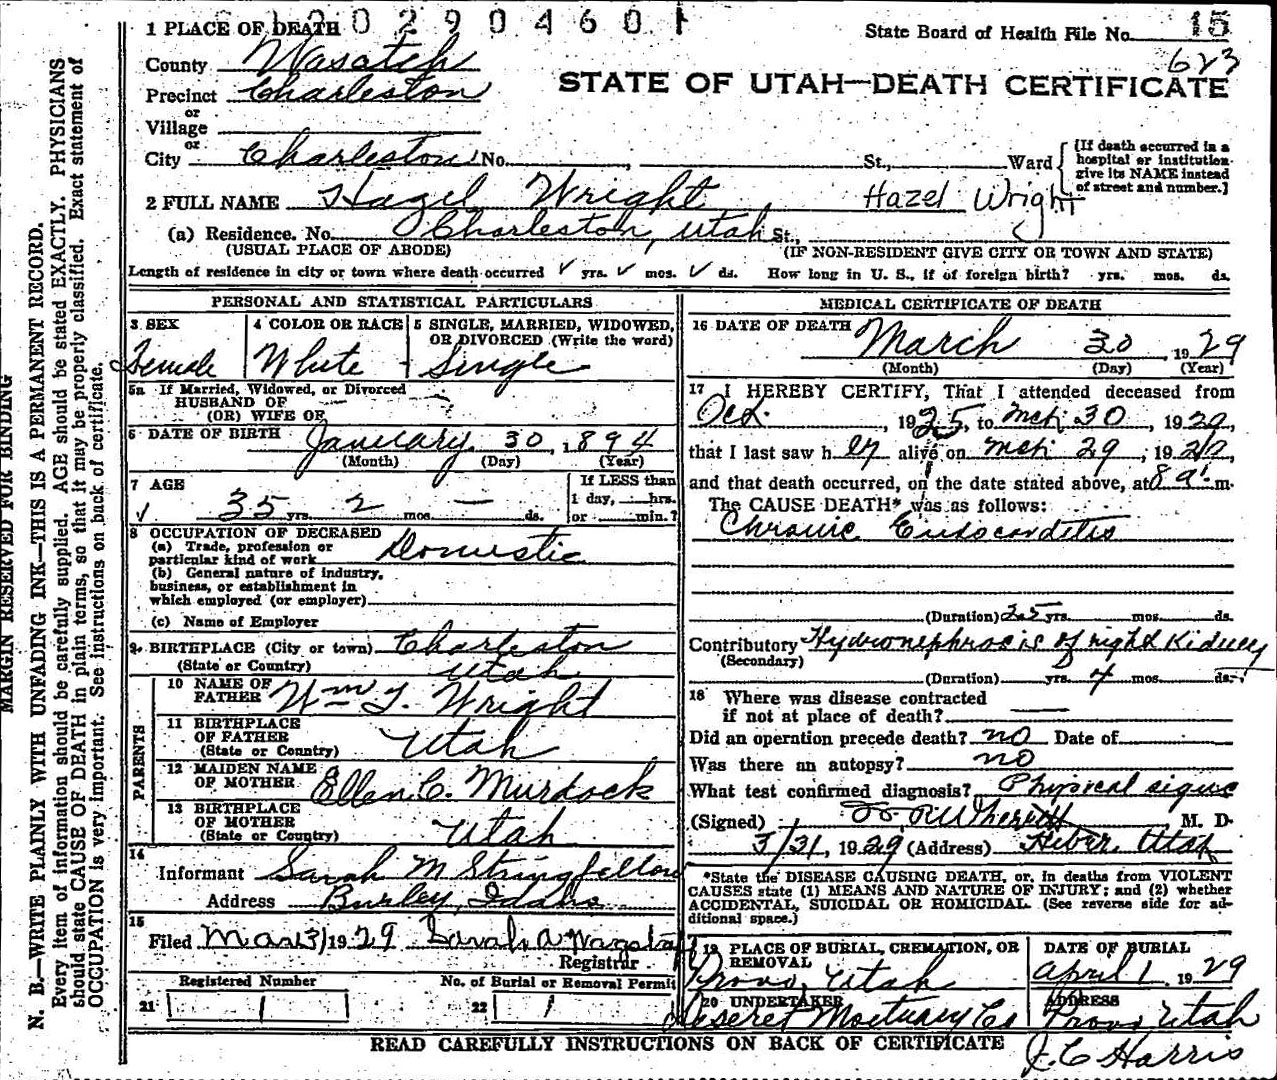 1 PLACE OF DEATH
State Board of Health File No. 15
623
County Wasatch
STATE OF UTAH—DEATH CERTIFICATE
Precinct Charleston
or
Village
or
City Charleston No. , St., Ward
{If death occurred in a hospital or institution give its NAME instead of street and number.}
2 FULL NAME Hazel Wright Hazel Wright
(a) Residence. No. Charleston, Utah St.,
(USUAL PLACE OF ABODE) (IF NON-RESIDENT GIVE CITY OR TOWN AND STATE)
Length of residence in city or town where death occurred yrs. mos. ds. How long in U. S., if of foreign birth? yrs. mos. ds.
PERSONAL AND STATISTICAL PARTICULARS
3 SEX
Female
4 COLOR OR RACE
White
5 SINGLE, MARRIED, WIDOWED, OR DIVORCED (Write the word)
Single
5a If Married, Widowed, or Divorced
HUSBAND OF —
(OR) WIFE OF
6 DATE OF BIRTH January 30, 1894
(Month) (Day) (Year)
7 AGE
35 yrs. 2 mos. — ds.
If LESS than
1 day, hrs.
or min.?
8 OCCUPATION OF DECEASED
(a) Trade, profession or
particular kind of work Domestic
(b) General nature of industry,
business, or establishment in
which employed (or employer)
(c) Name of Employer
9 BIRTHPLACE (City or town) Charleston
(State or Country) Utah
PARENTS
10 NAME OF
FATHER Wm T. Wright
11 BIRTHPLACE
OF FATHER
(State or Country) Utah
12 MAIDEN NAME
OF MOTHER Ellen C. Murdock
13 BIRTHPLACE
OF MOTHER
(State or Country) Utah
14
Informant Sarah M Stringfellow
Address Burley, Idaho
15
Filed Mar 31 1929 Sarah A Wagstaff
Registrar
Registered Number No. of Burial or Removal Permit
21 22
MEDICAL CERTIFICATE OF DEATH
16 DATE OF DEATH
March 30, 1929
(Month) (Day) (Year)
17 I HEREBY CERTIFY, That I attended deceased from
Oct. , 1925, to Mch 30, 1929,
that I last saw h er alive on Mch 29, 1929,
and that death occurred, on the date stated above, at 8 a. m.
The CAUSE DEATH* was as follows:
Chronic Endocarditis
(Duration) 25 yrs. mos. ds.
Contributory Hydronephrosis of right Kidney
(Secondary)
(Duration) yrs. 4 mos. ds.
18 Where was disease contracted
if not at place of death? —
Did an operation precede death? no Date of
Was there an autopsy? no
What test confirmed diagnosis? Physical signs
(Signed) M. D.
3/31, 1929 (Address) Heber, Utah
*State the DISEASE CAUSING DEATH, or, in deaths from VIOLENT
CAUSES state (1) MEANS AND NATURE OF INJURY; and (2) whether
ACCIDENTAL, SUICIDAL OR HOMICIDAL. (See reverse side for ad-
ditional space.)
19 PLACE OF BURIAL, CREMATION, OR
REMOVAL
Provo, Utah
DATE OF BURIAL
April 1 1929
20 UNDERTAKER
Deseret Mortuary Co
ADDRESS
Provo Utah
J. C Harris
READ CAREFULLY INSTRUCTIONS ON BACK OF CERTIFICATE
MARGIN RESERVED FOR BINDING
N. B.—WRITE PLAINLY WITH UNFADING INK—THIS IS A PERMANENT RECORD.
Every item of information should be carefully supplied. AGE should be stated EXACTLY. PHYSICIANS
should state CAUSE OF DEATH in plain terms, so that it may be properly classified. Exact statement of
OCCUPATION is very important. See instructions on back of certificate.